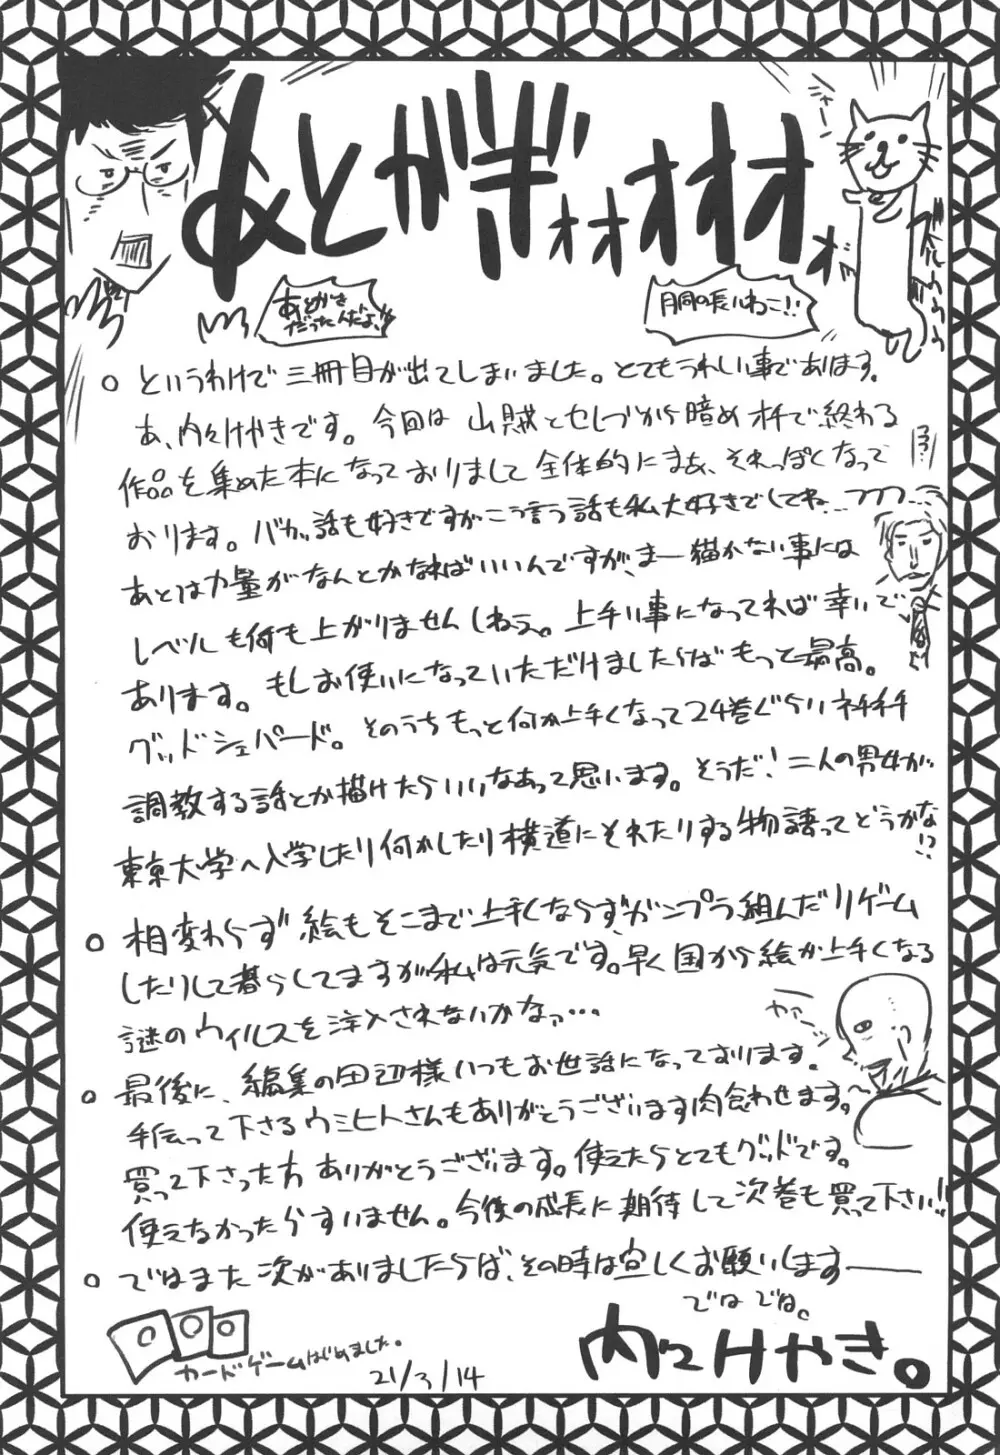 あとがぎォオオオオォ
あとがき
だったんだよ!!
胴の長いねこ!!
○ というわけで三冊目が出てしまいました。とてもうれしい事であります。
あ、内々けやきです。今回は山賊とセレブから暗めオチで終わる
作品を集めた本になっておりまして全体的にまぁ、それっぽくなって
おります。バカな話も好きですがこう言う話も私大好きでしてね…フフフ…
あとは力量がなんとかなればいいんですが、まー描かない事には
レベルも何も上がりませんしねぇ。上手い事になってれば幸いで
あります。もしお使いになっていただけましたらばもっと最高。
グッドシェパード。そのうちもっと何か上手くなって24巻ぐらいネチネチ
調教する話とか描けたらいいなあって思います。そうだ!二人の男女が
東京大学へ入学したり何かしたり横道にそれたりする物語ってどうかな!?
○ 相変わらず絵もそこまで上手くならず、ガンプラ組んだりゲーム
したりして暮らしてますが私は元気です。早く国から絵が上手くなる
謎のウィルスを注入されないかなァ…
○ 最後に、編集の田辺様いつもお世話になっております。
手伝って下さるウミヒトさんもありがとうございます肉食わせます。
買って下さった方ありがとうございます。使えたらとてもグッドです。
使えなかったらすいません。今後の成長に期待して次巻も買って下さい!!
○ ではまた次がありましたらば、その時は宜しくお願いします――
ではでは。
カードゲームはじめました。
21/3/14
内々けやき。